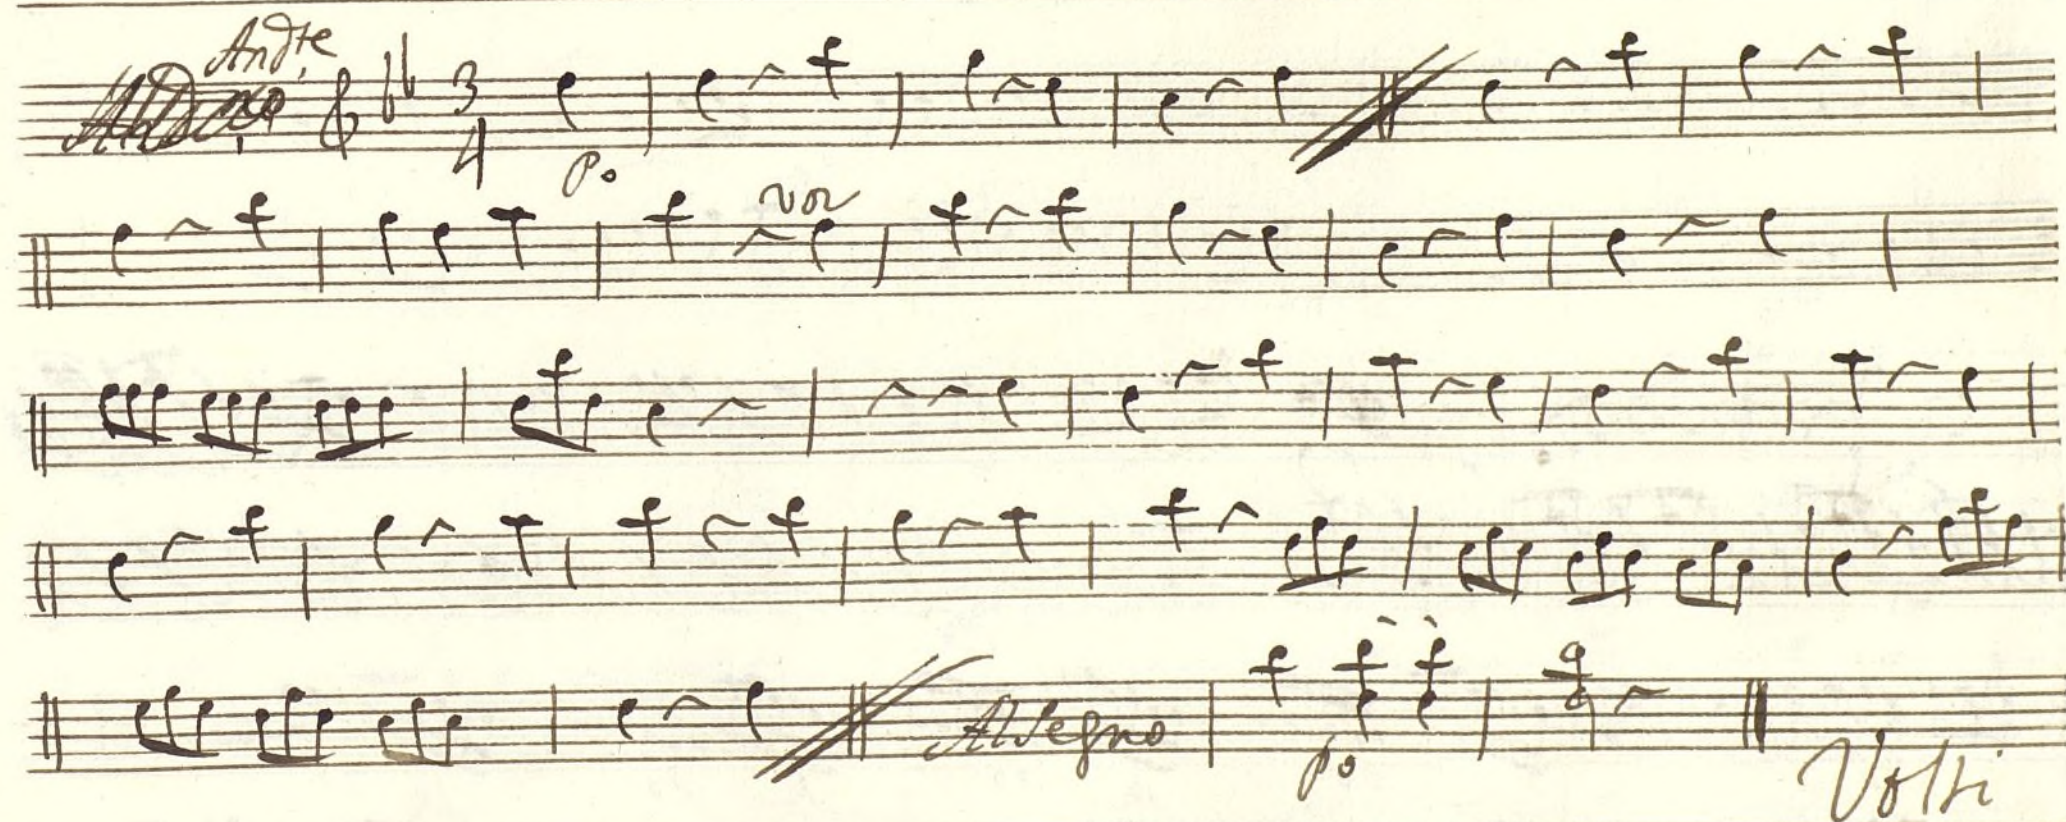 Andte
3
4
po
vor
Al Segno
po
Volti